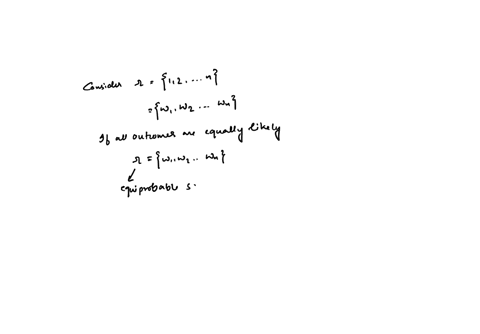 Consider Ω = {1, 2, ... n}
= {ω₁, ω₂ ... ωₙ}
If all outcomer are equally likely
Ω = {ω₁, ω₂ .. ωₙ}
equiprobable s.